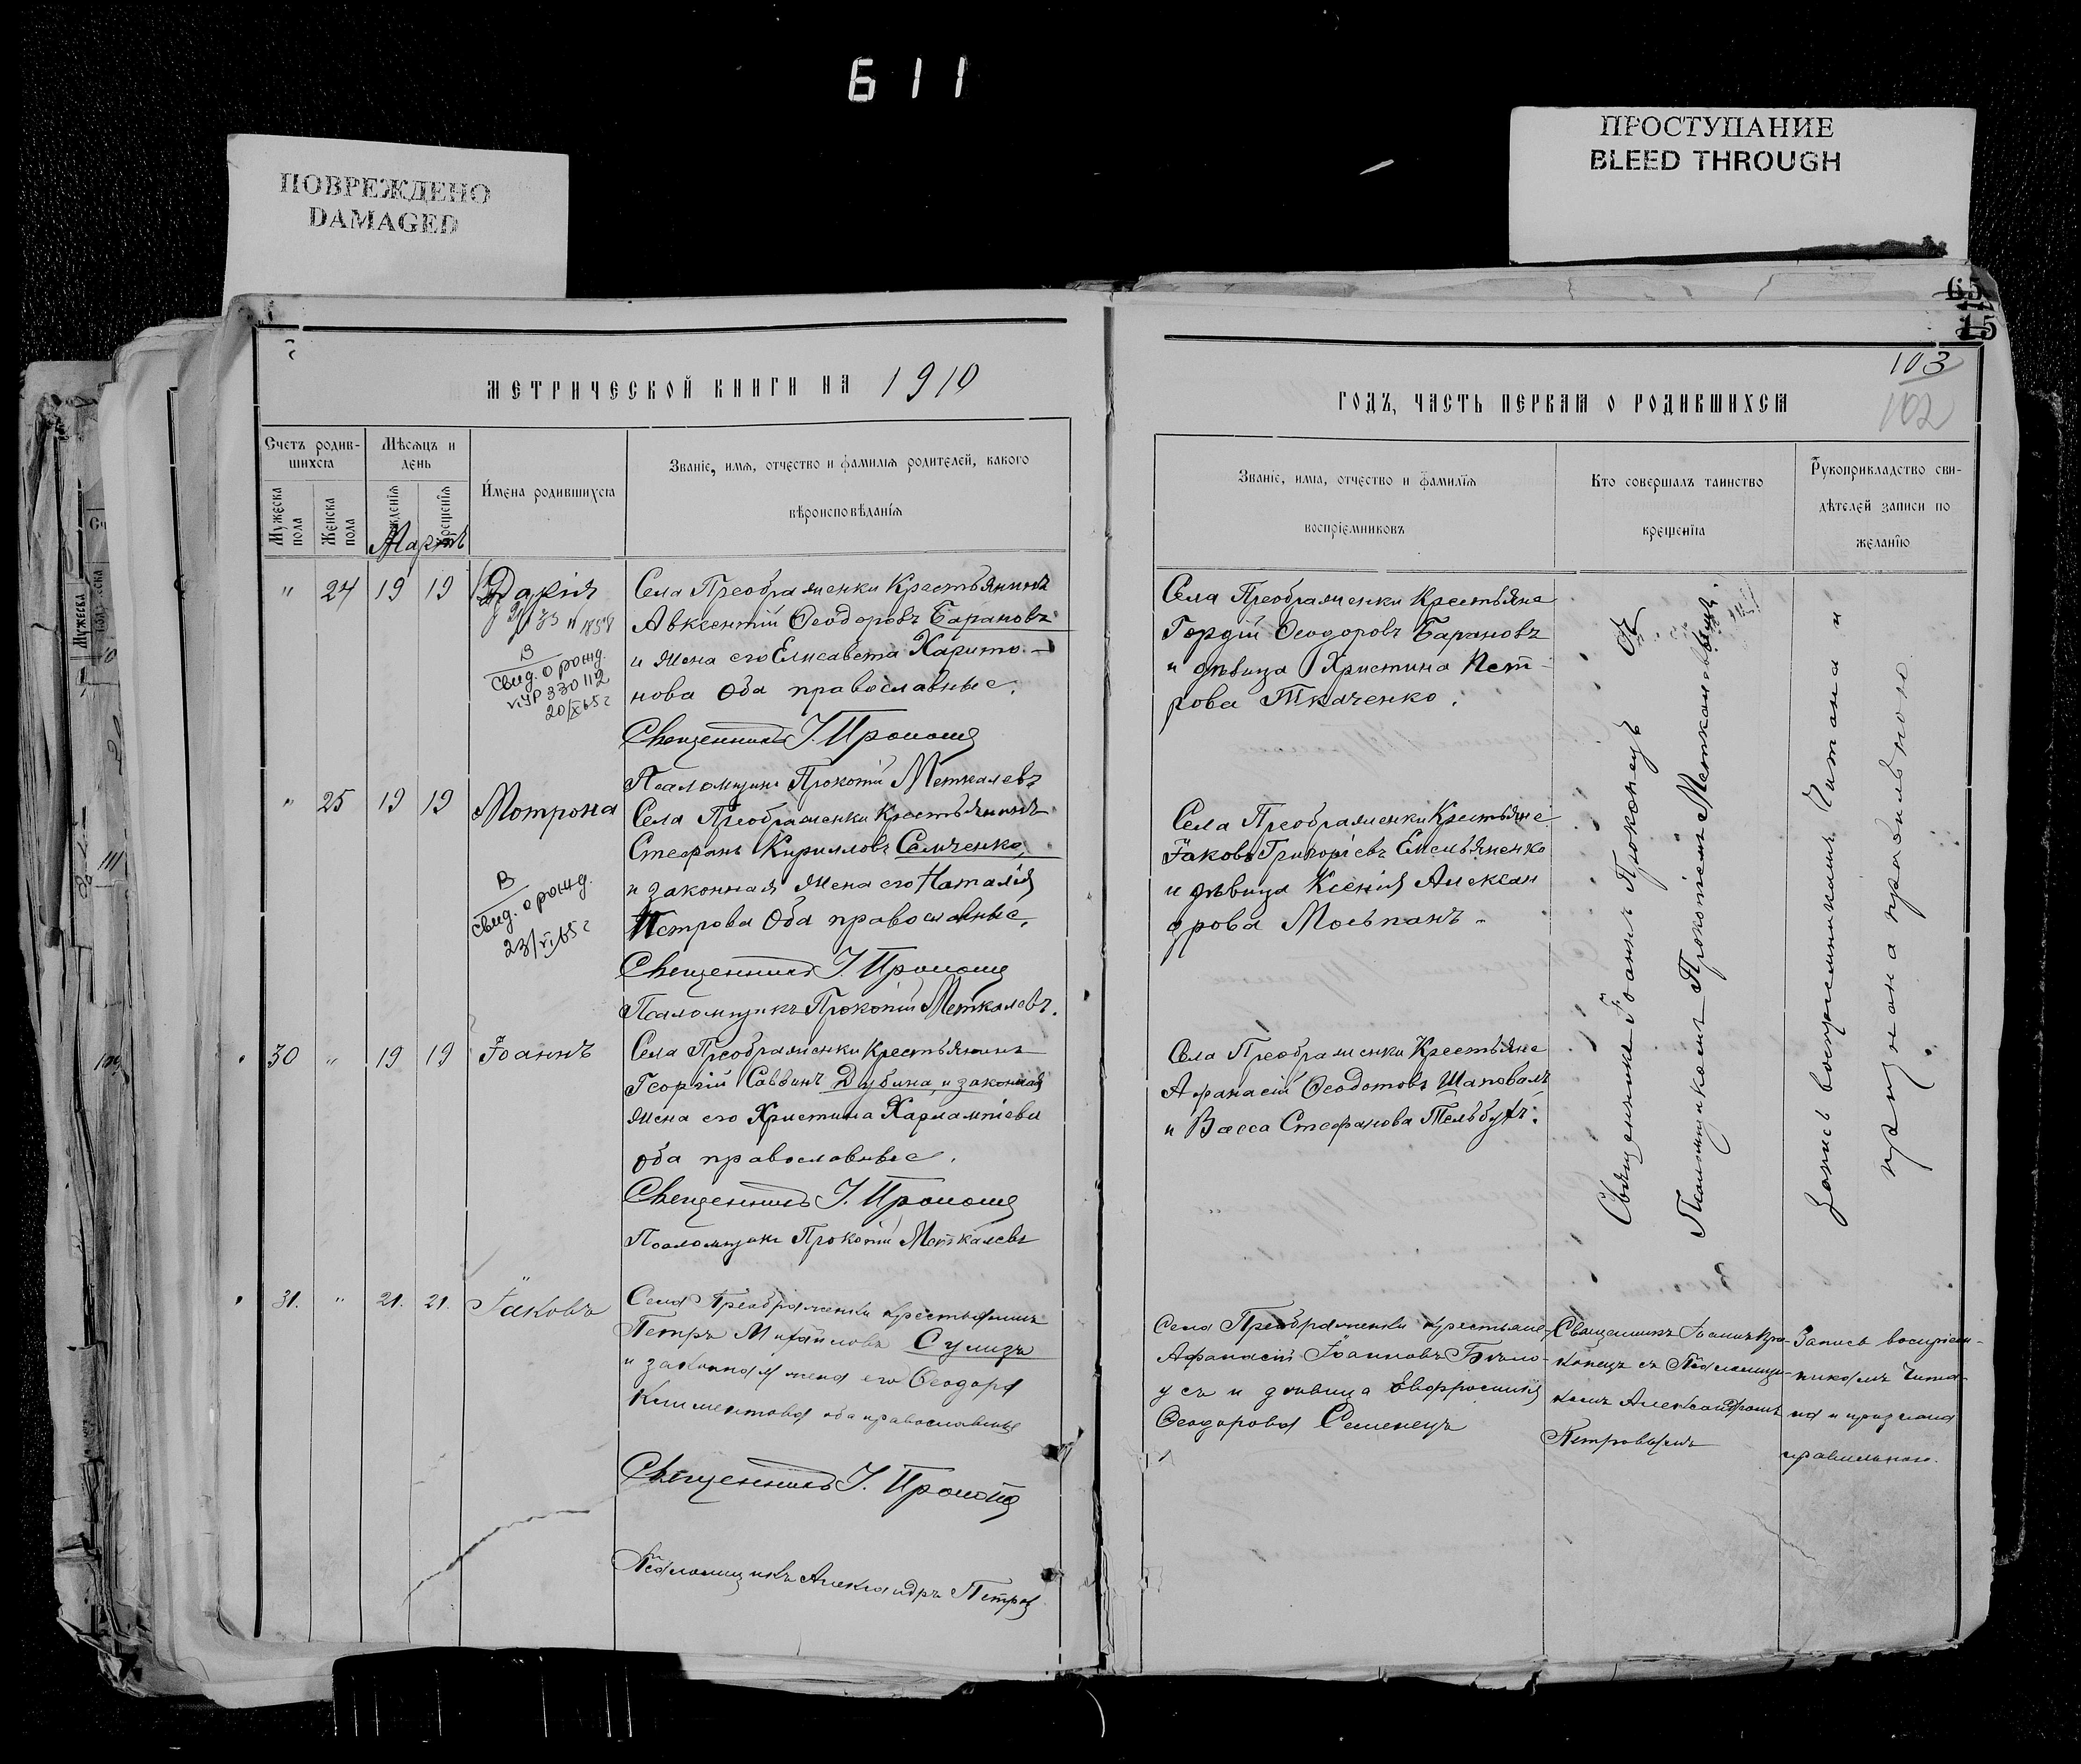 611
ПОВРЕЖДЕНО
DAMAGED
ПРОСТУПАНИЕ
BLEED THROUGH
65
15
103
102
МЕТРИЧЕСКОЙ КНИГИ НА 1910
ГОДЪ, ЧАСТЬ ПЕРВАЯ О РОДИВШИХСЯ
Счетъ родив-
шихся
Мужеска пола
Женска пола
Мѣсяцъ и
день
рожденія
крещенія
Мартъ
Имена родившихся
Званіе, имя, отчество и фамилія родителей, какого
вѣроисповѣданія
Званіе, имя, отчество и фамилія
воспріемниковъ
Кто совершалъ таинство
крещенія
Рукоприкладство сви-
дѣтелей записи по
желанію
" 24 19 19 Дарія
В
свид. о рожд.
VI УР 330112
20/X 65 г
Села Преображенки Крестьянинъ
Авксентій Ѳеодоровъ Барановъ
и жена его Елисавета Харито-
нова Оба православные.
Священникъ І. Прокопец
Псаломщикъ Прокопій Меткалевъ
Села Преображенки Крестьяне
Гордій Ѳеодоровъ Барановъ
и дѣвица Христина Пет-
рова Ткаченко.
" 25 19 19 Мотрона
В
свид. о рожд.
23/VI 65 г
Села Преображенки Крестьянинъ
Стефанъ Кирилловъ Семченко,
и законная жена его Наталія
Петрова Оба православные.
Священникъ І. Прокопец
Псаломщикъ Прокопій Меткалевъ.
Села Преображенки Крестьяне
Іаковъ Григоріевъ Емельяненко
и дѣвица Ксенія Алексан
дрова Мосьпанъ
30 " 19 19 Іоаннъ
Села Преображенки Крестьянинъ
Георгій Саввинъ Дубина, и законная
жена его Христина Харлампіева
оба православные.
Священникъ І. Прокопец
Псаломщикъ Прокопій Меткалевъ
Села Преображенки Крестьяне
Афанасій Ѳеодотовъ Шаповалъ
и Васса Стефанова Тельбухъ.
Священникъ Іоаннъ Прокопецъ съ
Псаломщикомъ Прокопіемъ Меткалевымъ.
Запись воспріемникамъ Читана и
признана правильною.
31. " 21. 21. Іаковъ
Села Преображенки крестьянинъ
Петръ Михайловъ Сулизъ
и законная жена его Ѳеодора
Климентова оба православные
Священникъ І. Прокопец
Псаломщикъ Александръ Петров
Села Преображенки крестьяне
Афанасій Іоанновъ Бѣло-
усъ и дѣвица Евфросинія
Ѳеодорова Семенецъ
Священникъ Іоаннъ Про-
копецъ съ Псаломщи-
комъ Александромъ
Петровымъ
Запись воспріем-
никамъ Чита-
на и признана
правильною.